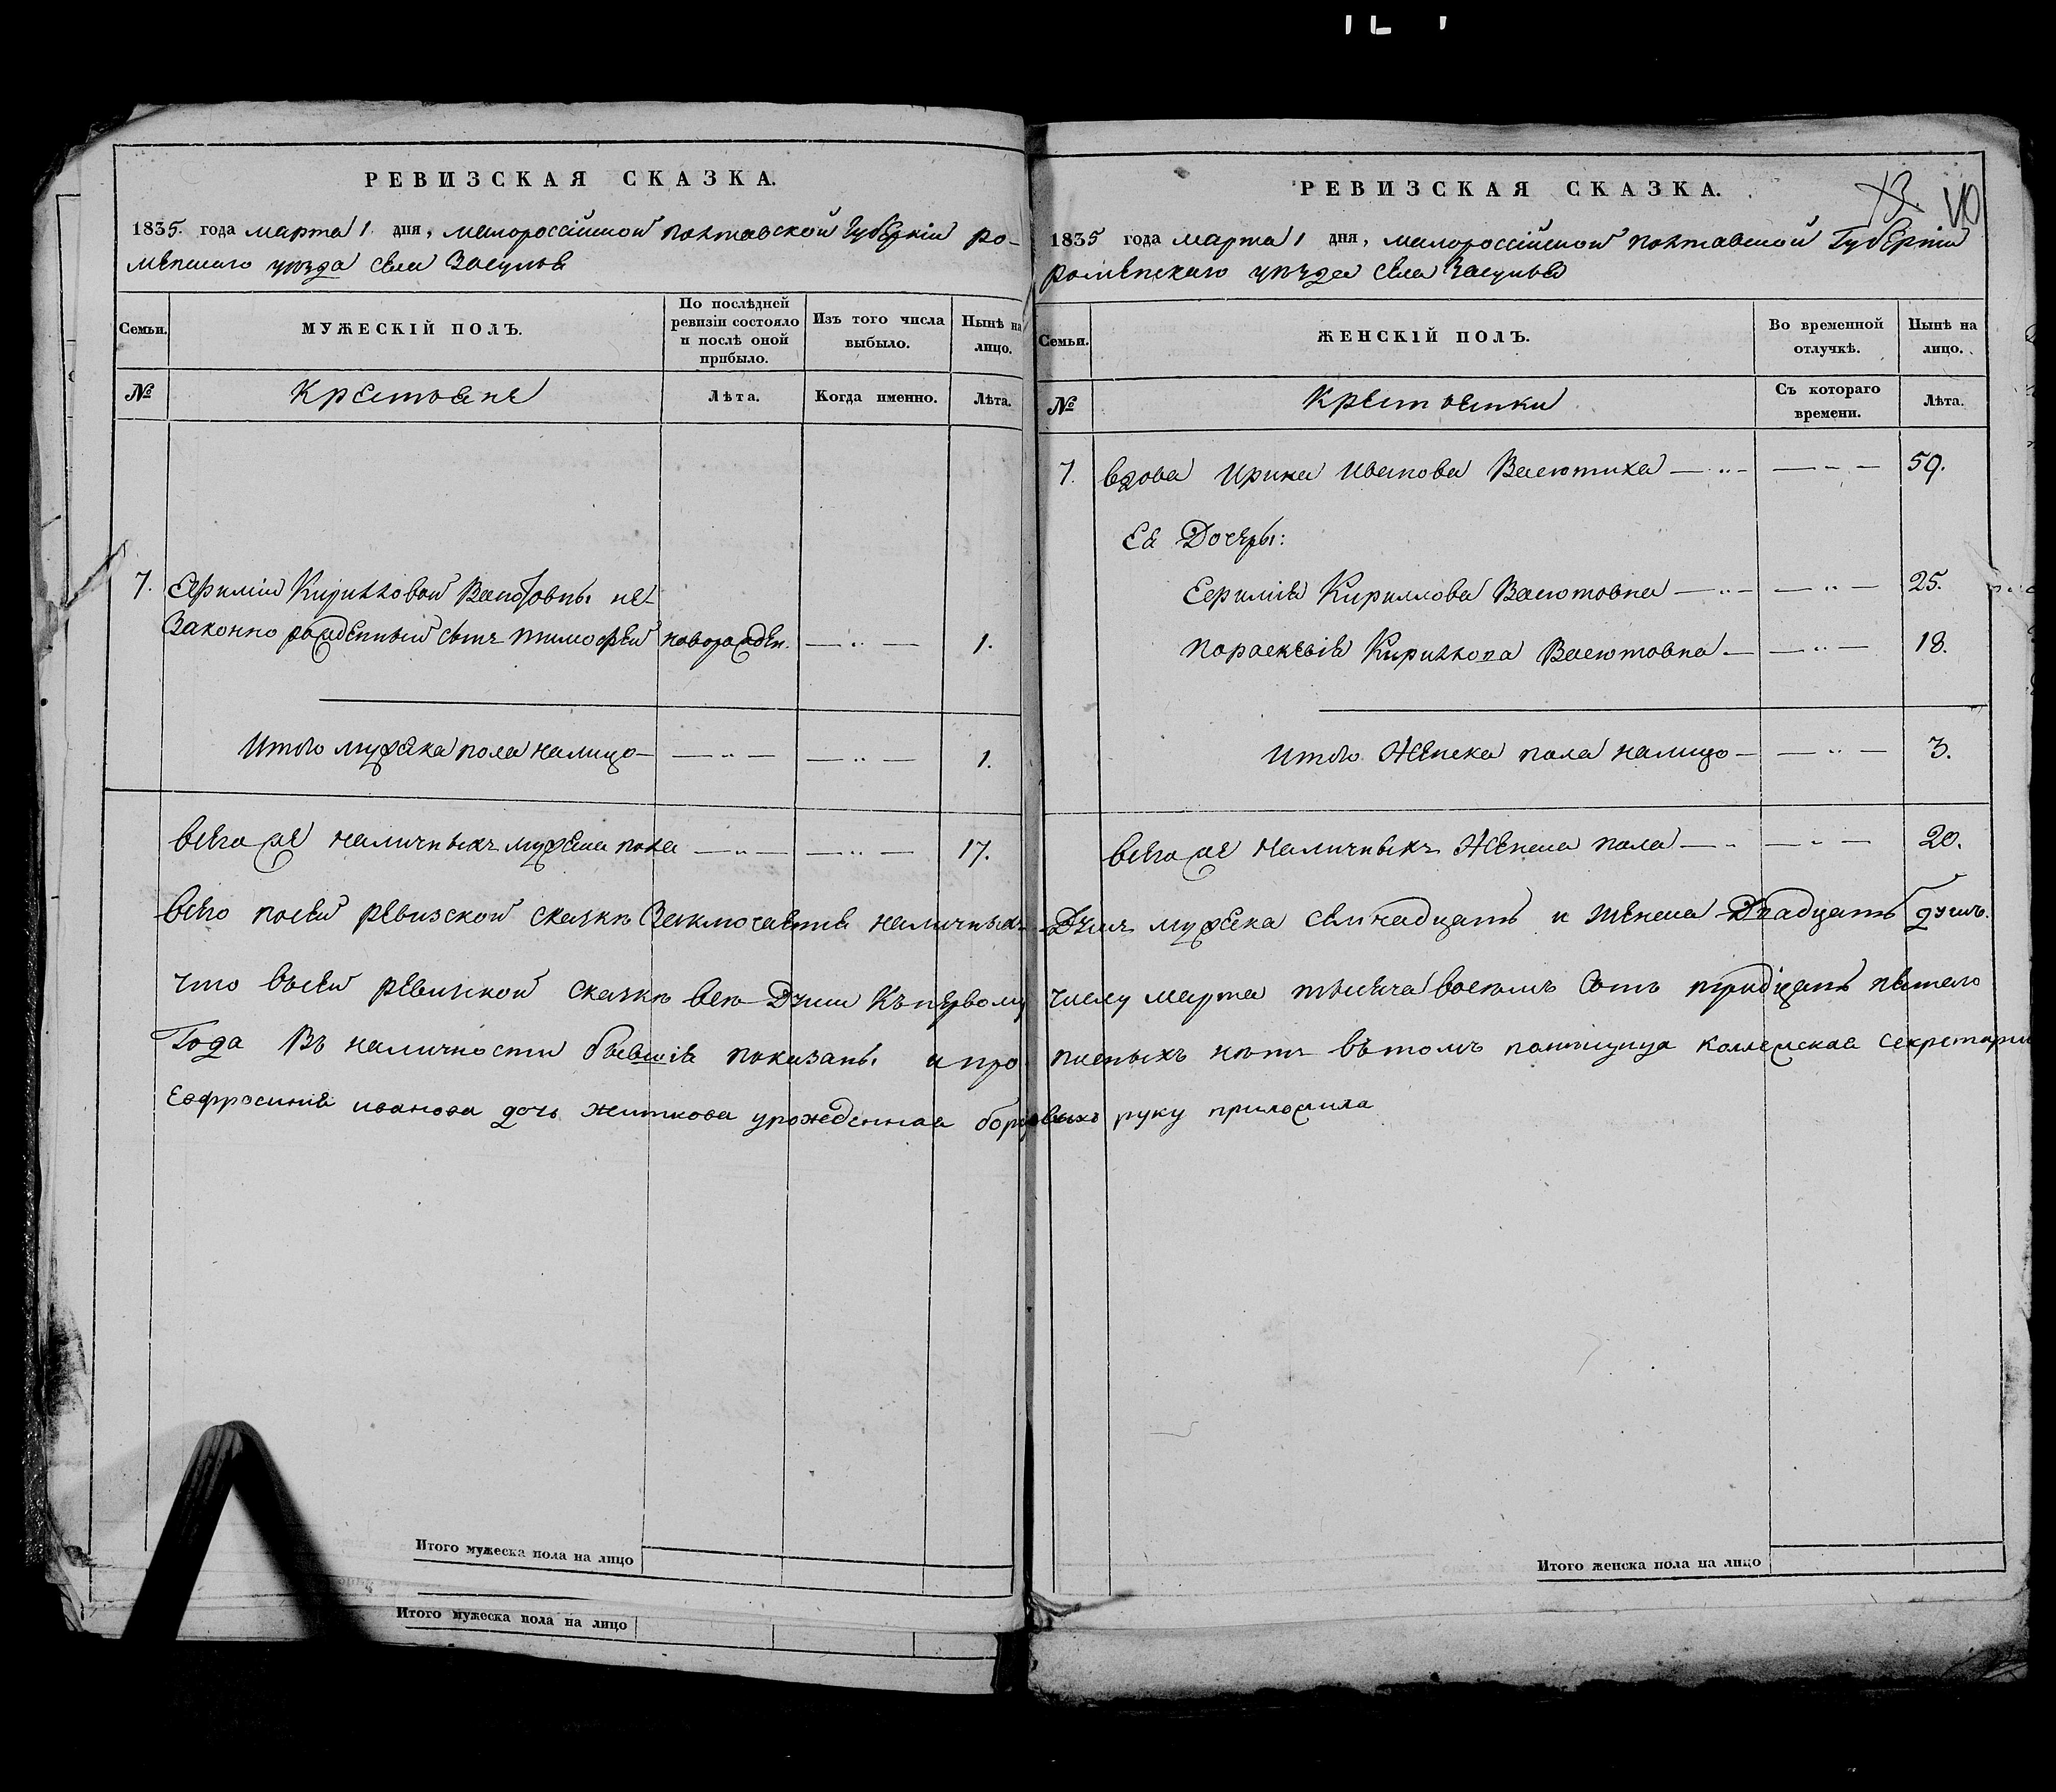 РЕВИЗСКАЯ СКАЗКА.
1835. года марта 1. дня, малороссійской полтавской Губерніи ро-
менскаго уезда села Засулья
Семьи.
МУЖЕСКІЙ ПОЛЪ.
По послѣдней ревизіи состояло и послѣ оной прибыло.
Изъ того числа выбыло.
Нынѣ на лицо.
№
Крестьяне
Лѣта.
Когда именно.
Лѣта.
7. Ефиміи Кирилловой Васютовны не-
законно рожденный сынъ тимофей новорожден. — „ — 1.
Итого мужеска пола налицо — — „ — — „ — 1.
всего же наличныхъ мужеска пола — „ — — „ — 17.
РЕВИЗСКАЯ СКАЗКА.
1835 года марта 1 дня, малороссійской полтавской Губерніи
роменскаго уезда села Засулья
Семьи.
ЖЕНСКІЙ ПОЛЪ.
Во временной отлучкѣ.
Нынѣ на лицо.
№
Крестьянки
Съ котораго времени.
Лѣта.
7. вдова Ирина Иванова Васютиха — „ — — „ — 59.
Ея Дочери:
Ефимія Кириллова Васютовна — „ — — „ — 25.
Параскевія Кириллова Васютовна — — „ — 18.
Итого Женска пола налицо — — „ — 3.
всего же наличныхъ Женска пола — „ — „ — 20.
всего посей ревизской сказкѣ Заключается наличныхъ Душъ мужеска семнадцать и женска Двадцать душъ.
что въсей ревизской сказкѣ все Души Къпервому числу марта тысяча восемъ Сотъ тридцать пятаго
Года Въ наличности бывшія показаны и прописныхъ нѣтъ вътомъ помещица колежская секретарша
Евфросинія иванова дочь житкова урожденная руку приложила
Итого мужеска пола на лицо
Итого женска пола на лицо
Итого мужеска пола на лицо